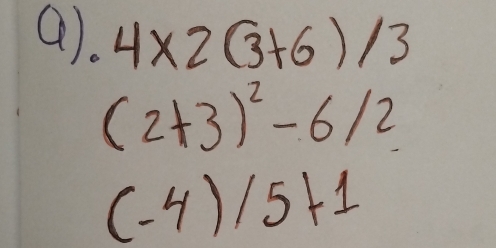 a). 4x2(3+6)/3
(2+3)² - 6/2
(-4)/5+1